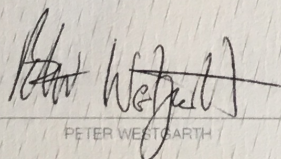 Peter Westgarth
PETER WESTGARTH